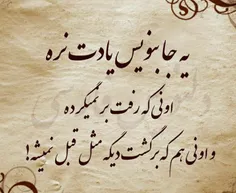 یه جا بنویس یادت نره
اونی که رفت بر نمیگرده
و اونی هم که برگشت دیگه مثل قبل نمیشه!